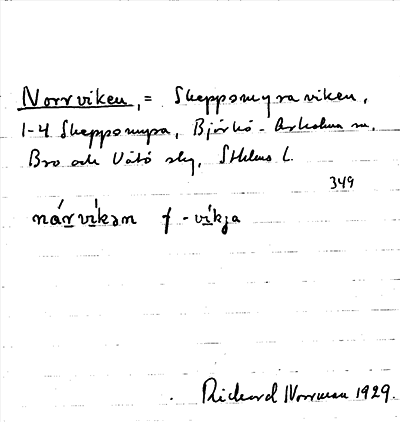 Norrviken, = Skeppsmyraviken,
1-4 Skeppsmyra, Björkö-Arholma sn,
Bro och Vätö skg, Sthlms l.
349
nárvíkən f -víkja
Richard Norrman 1929.